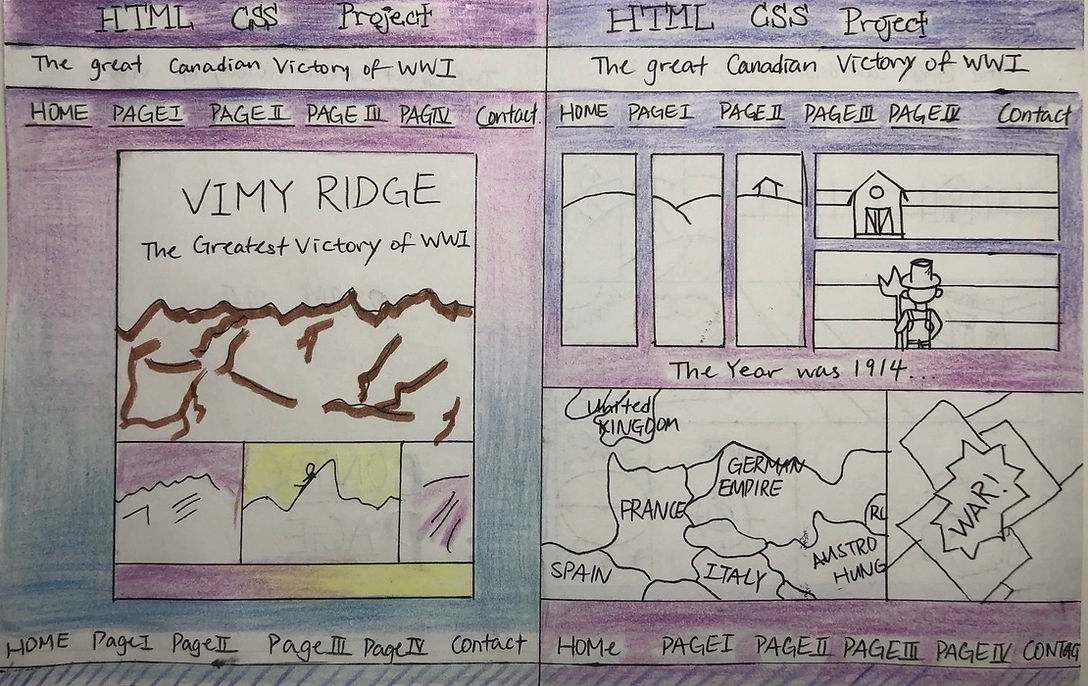 HTML CSS Project
The great Canadian Victory of WWI
HOME PAGEI PAGEII PAGEIII PAGIV Contact.
VIMY RIDGE
The Greatest Victory of WWI
HOME PageI PageII PageIII PageIV Contact
HTML CSS Project
The great Canadian Victory of WWI
HOME PAGEI PAGEII PAGEIII PAGEIV Contact
The Year was 1914...
United
KINGDOM
GERMAN
EMPIRE
FRANCE
SPAIN
ITALY
AUSTRO
HUNG
WAR!
HOMe PAGEI PAGEII PAGEIII PAGEIV CONTAC